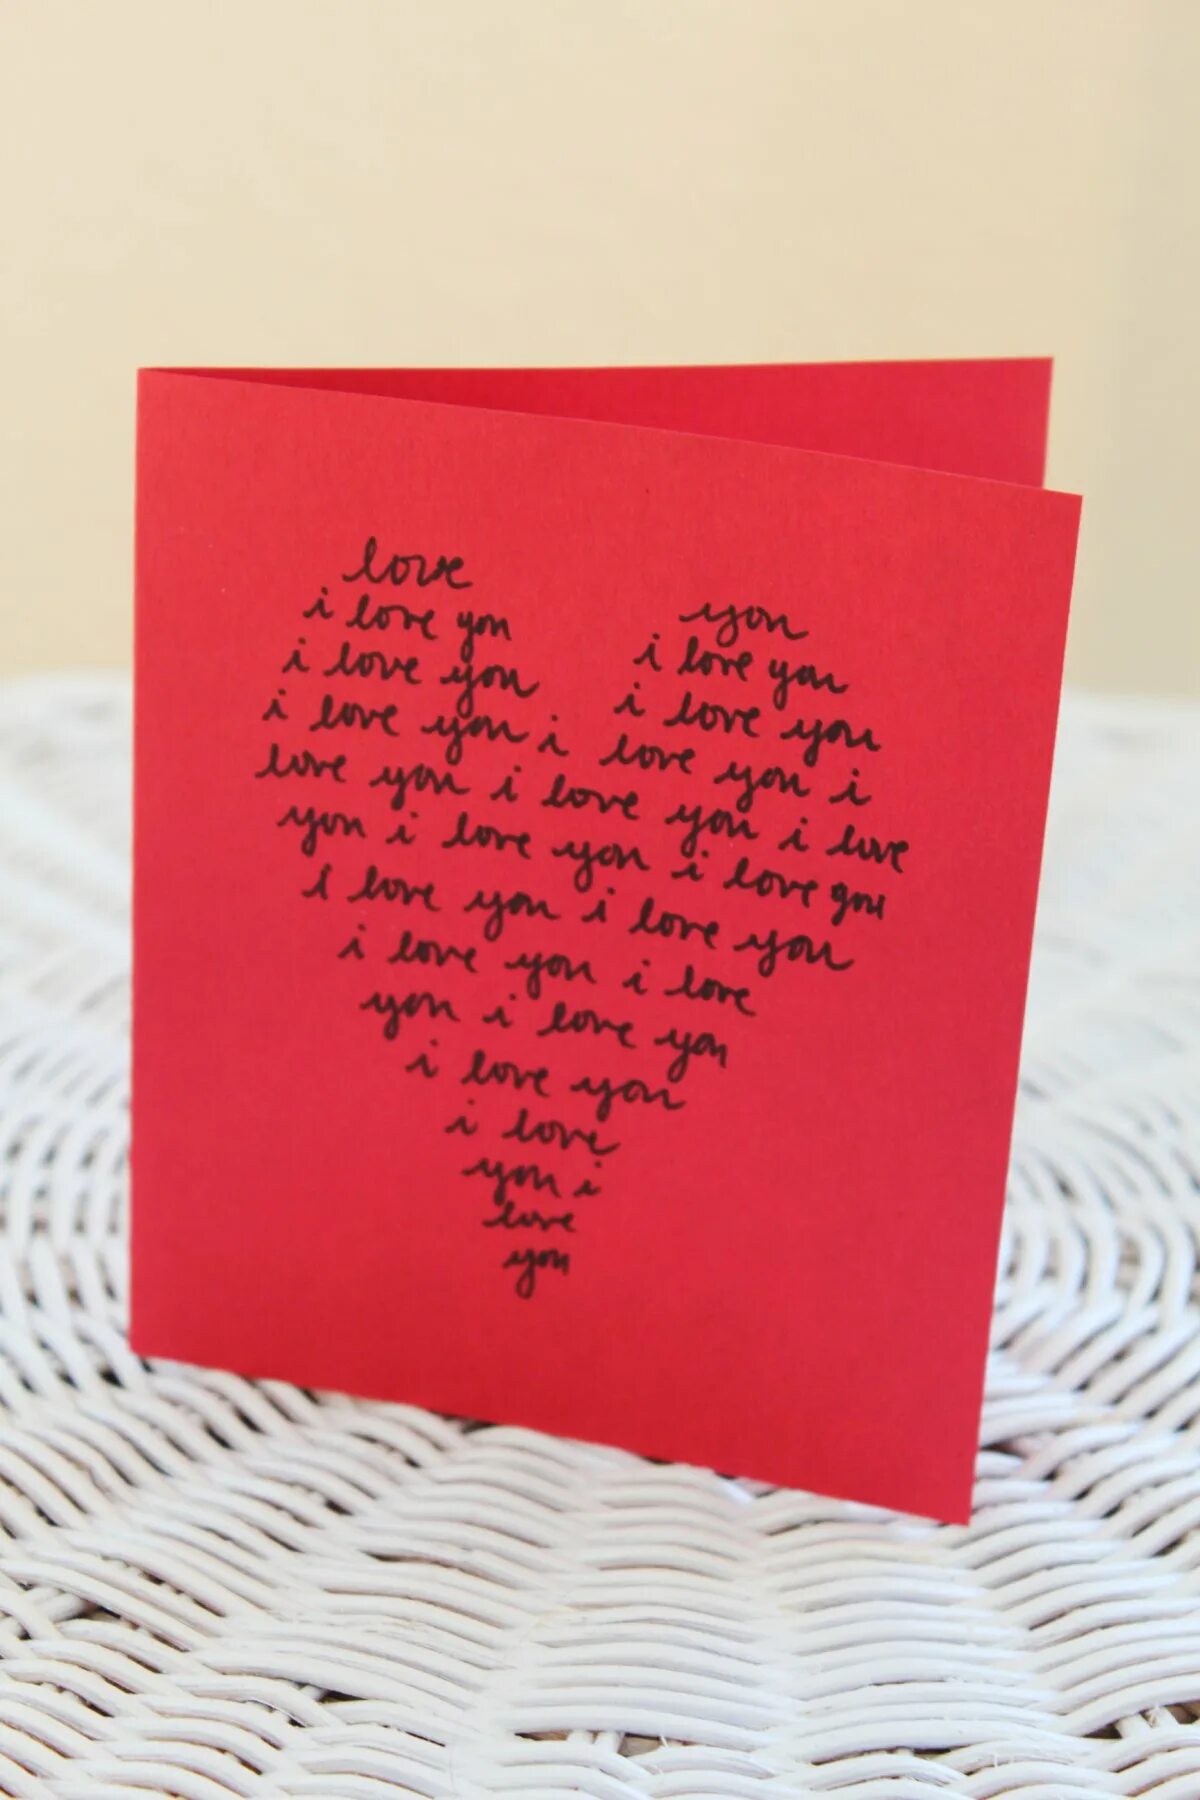 love
i love you you
i love you i love you
i love you i i love you
love you i love you i
you i love you i love
I love you i love you
i love you i love you
you i love you
i love you
i love
you i
love
you